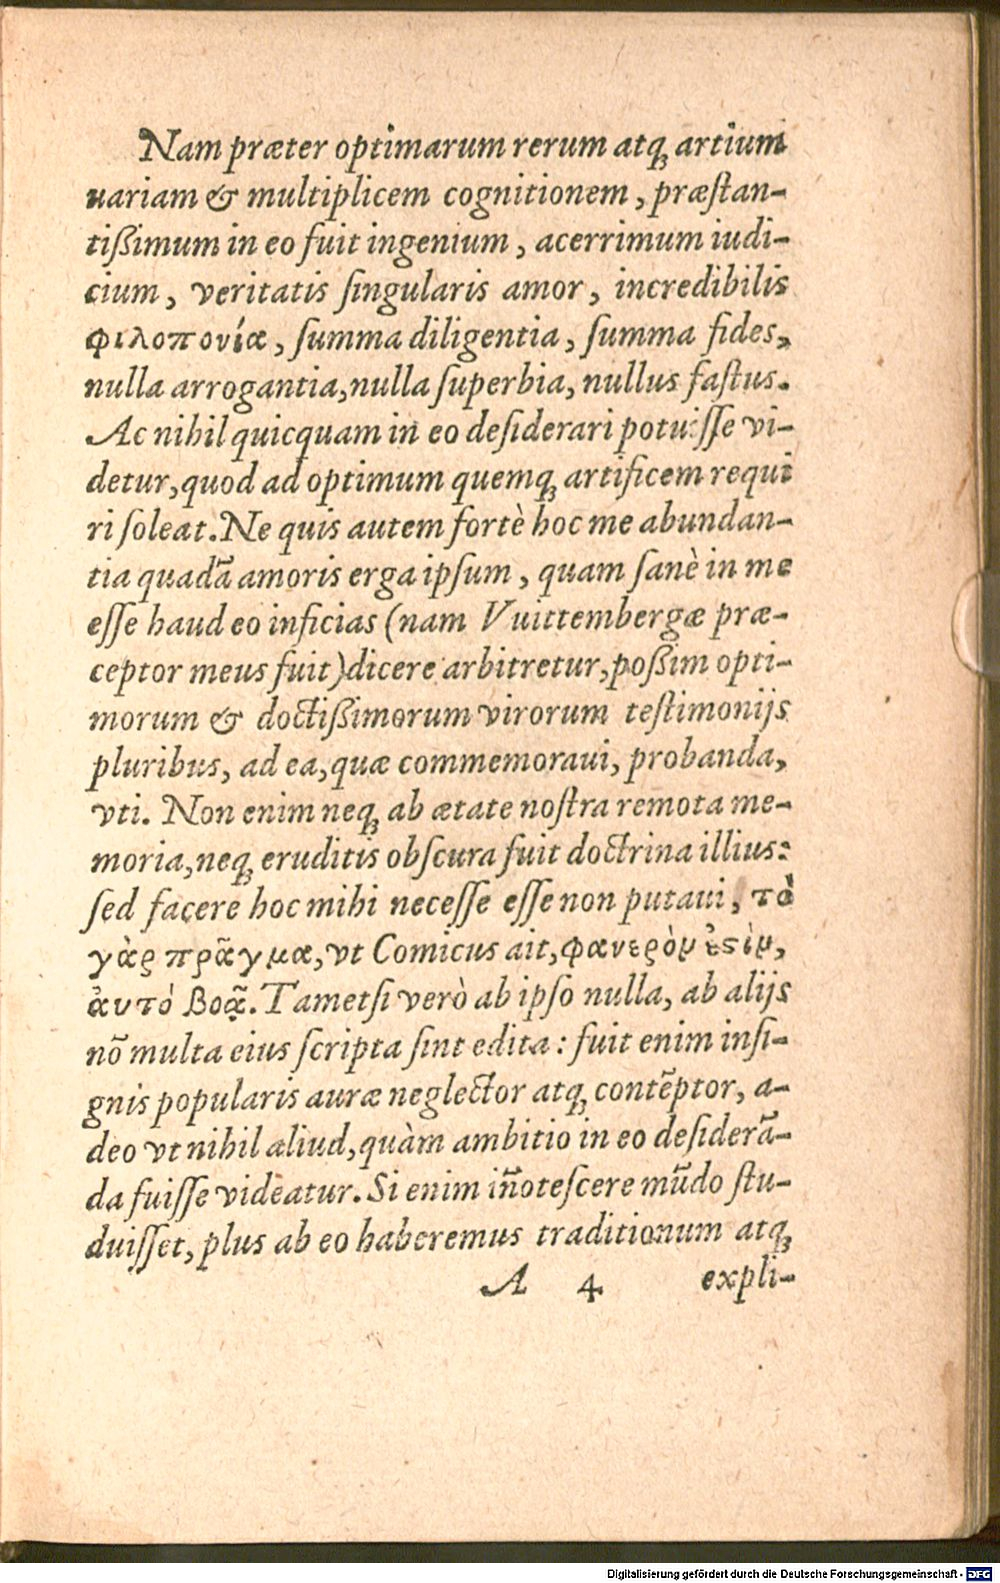 Nam præter optimarum rerum atq; artium
uariam & multiplicem cognitionem, præſtan-
tißimum in eo fuit ingenium, acerrimum iudi-
cium, veritatis ſingularis amor, incredibilis
φιλοπονία, ſumma diligentia, ſumma fides,
nulla arrogantia, nulla ſuperbia, nullus faſtus.
Ac nihil quicquam in eo deſiderari potuiſſe vi-
detur, quod ad optimum quemq; artificem requi
ri ſoleat. Ne quis autem fortè hoc me abundan-
tia quadā amoris erga ipſum, quam ſanè in me
eſſe haud eo inficias (nam Vuittembergæ præ-
ceptor meus fuit) dicere arbitretur, poßim opti-
morum & doctißimorum virorum teſtimonijs
pluribus, ad ea, quæ commemoraui, probanda,
vti. Non enim neq; ab ætate noſtra remota me-
moria, neq; eruditis obſcura fuit doctrina illius:
ſed facere hoc mihi neceſſe eſſe non putaui, τὸ
γὰρ πρᾶγμα, vt Comicus ait, φανερὸν ἐςὶν,
ἀυτό βοᾷ. Tametſi verò ab ipſo nulla, ab alijs
nō multa eius ſcripta ſint edita: fuit enim inſi-
gnis popularis auræ neglector atq; contēptor, a-
deo vt nihil aliud, quàm ambitio in eo deſiderā-
da fuiſſe videatur. Si enim iñoteſcere mūdo ſtu-
duiſſet, plus ab eo haberemus traditionum atq;
A 4 expli-
Digitalisierung gefördert durch die Deutsche Forschungsgemeinschaft - DFG